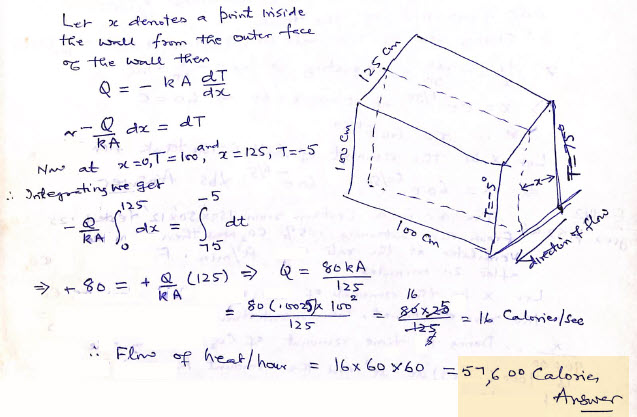 Let x denotes a point inside
the wall from the outer face
of the wall then
Q = - kA dT/dx
~ - Q/kA dx = dT
Now at x=0, T=100, and x=125, T=-5
∴ Integrating we get
- Q/kA ∫₀¹²⁵ dx = ∫₇₅⁻⁵ dt
⇒ + 80 = + Q/kA (125) ⇒ Q = 80kA/125
= 80 (.0025) x 100²/125 = 16 80x25/125 5 = 16 Calories/sec
∴ Flow of heat/hour = 16 x 60 x 60 = 57,600 Calories
Answer
125 cm
100 cm
100 cm
T=-5°
x
T=75°
direction of flow